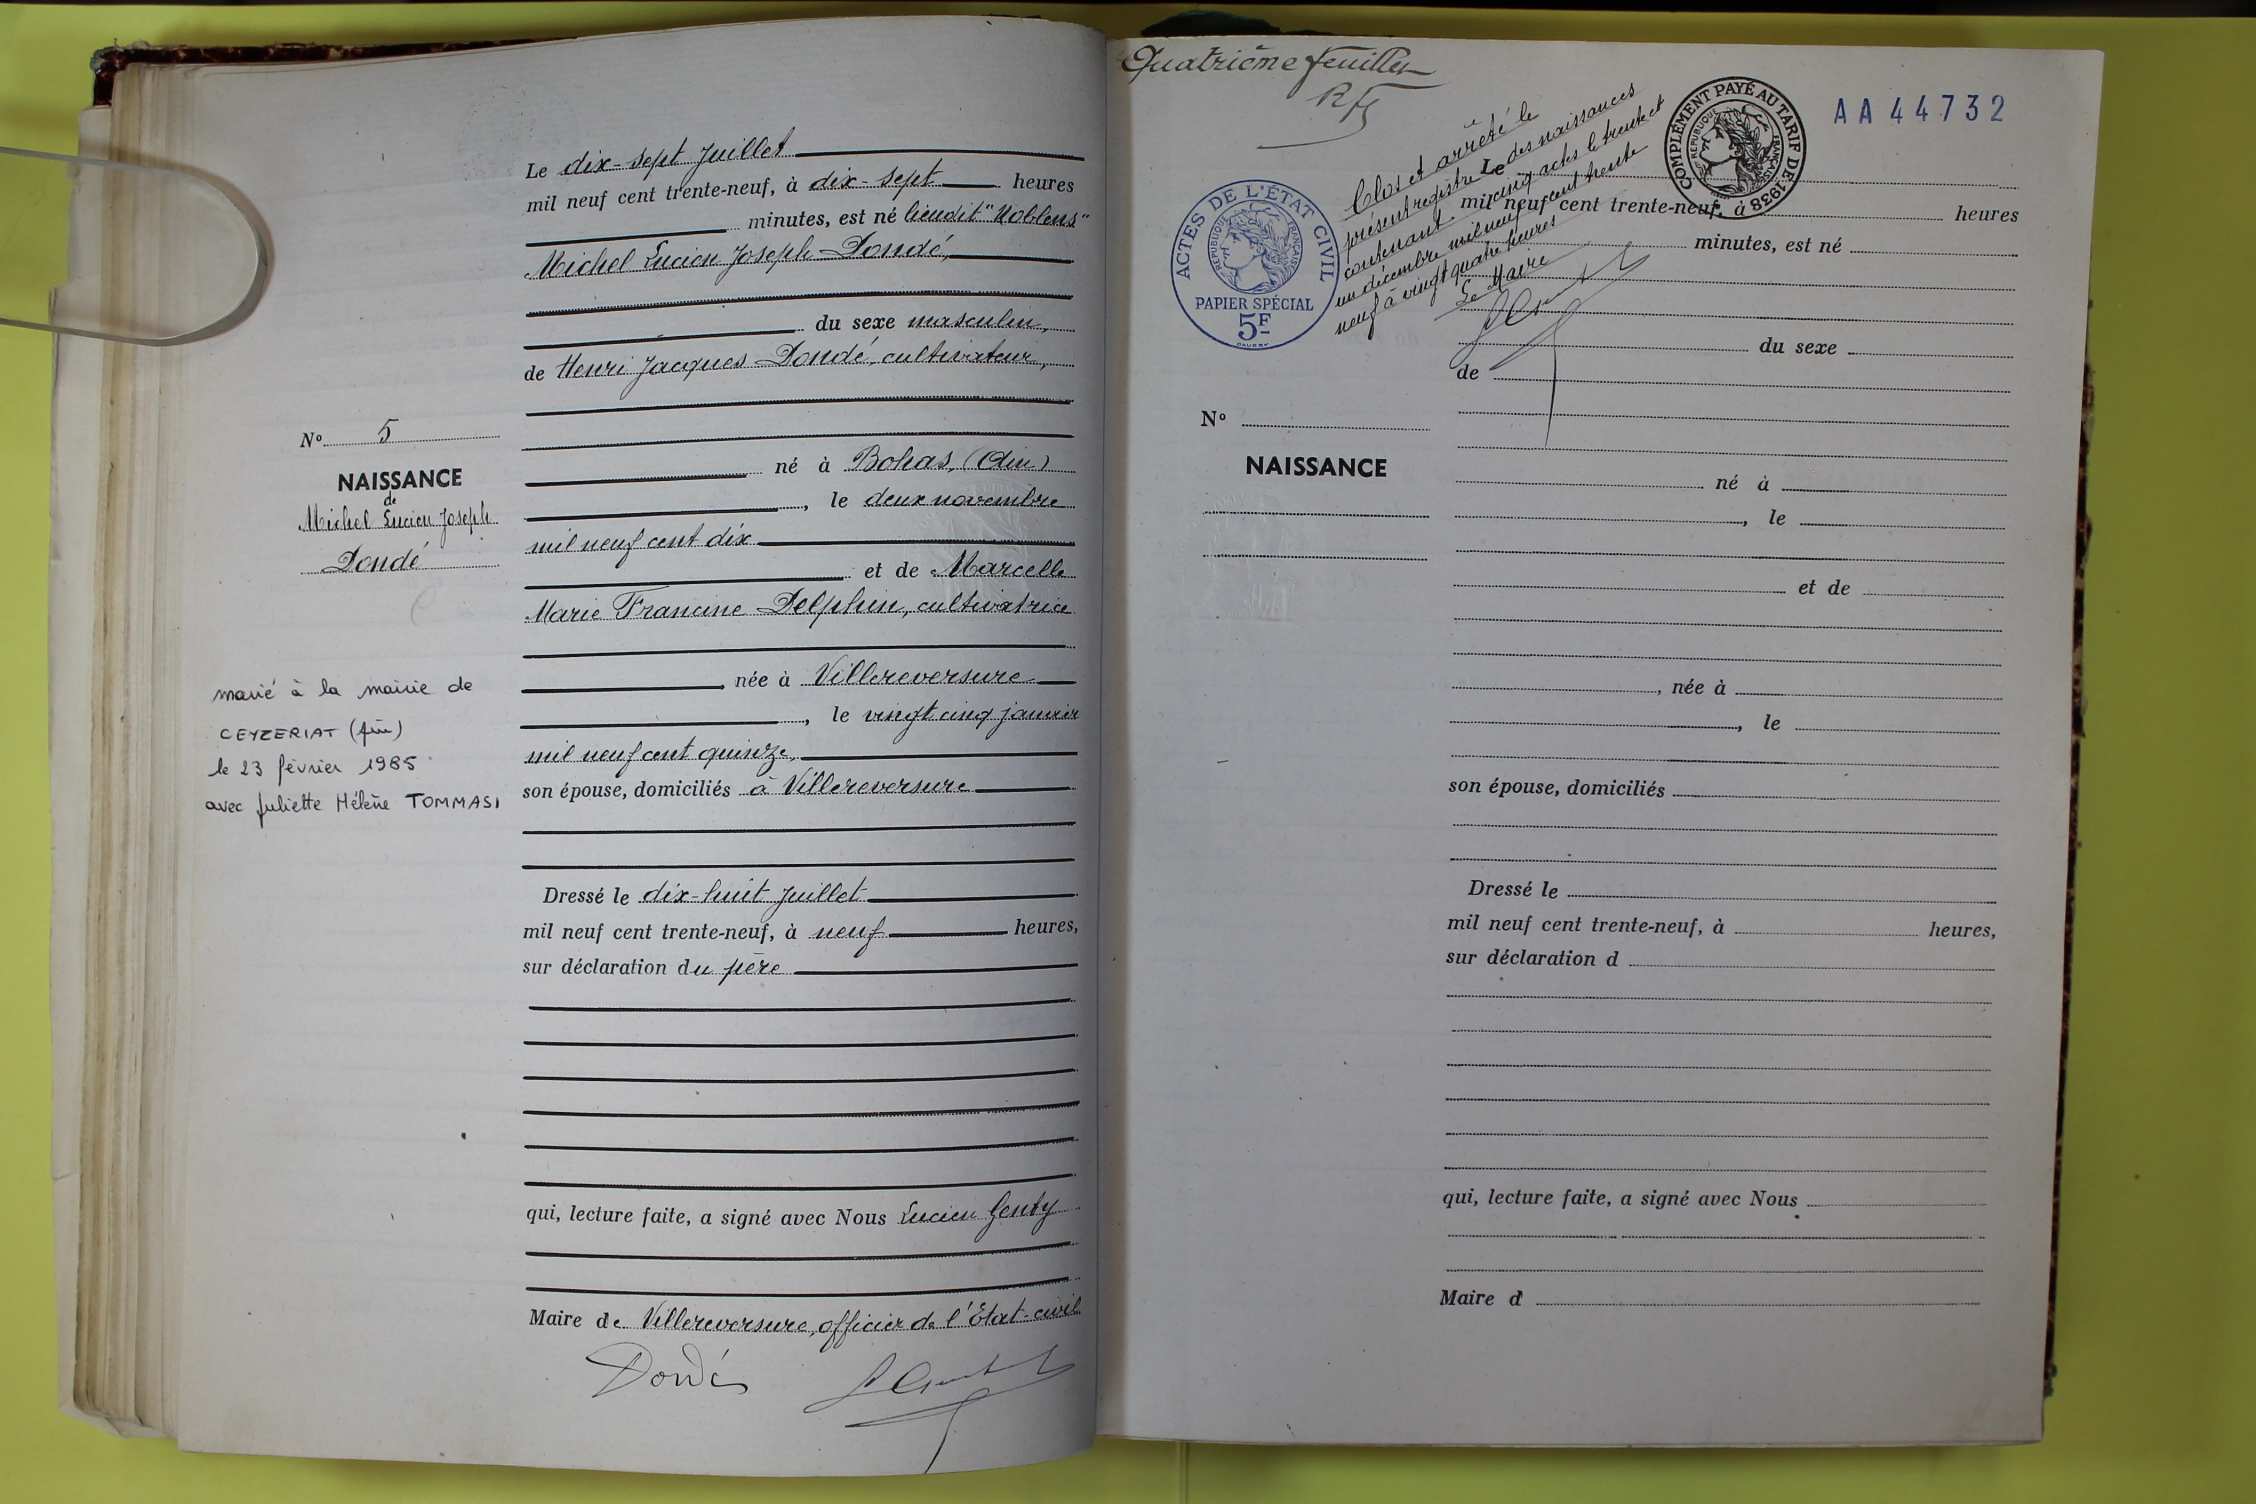 Le dix-sept Juillet
mil neuf cent trente-neuf, à dix-sept heures
minutes, est né lieudit "Noblens"
Michel Lucien Joseph Dondé,
du sexe masculin,
de Henri Jacques Dondé, cultivateur,
né à Bohas, (Ain)
, le deux novembre
mil neuf cent dix
et de Marcelle
Marie Francine Delphin, cultivatrice
, née à Villereversure
, le vingt cinq janvier
mil neuf cent quinze,
son épouse, domiciliés à Villereversure
Dressé le dix-huit Juillet
mil neuf cent trente-neuf, à neuf heures,
sur déclaration du père
qui, lecture faite, a signé avec Nous Lucien Genty
Maire de Villereversure, officier de l'Etat-civil
Dondé
Nº 5
NAISSANCE
de
Michel Lucien Joseph
Dondé
marié à la mairie de
CEYZERIAT (Ain)
le 23 février 1985
avec Juliette Hélène TOMMASI
Quatrième feuillet
ACTES DE L'ÉTAT CIVIL
RÉPUBLIQUE FRANÇAISE
PAPIER SPÉCIAL
5F
COMPLÉMENT PAYÉ AU TARIF DE 1938
RÉPUBLIQUE FRANÇAISE
AA 44732
Clos et arrêté le
présent registre des naissances
contenant cinq actes le trente et
un décembre mil neuf cent trente
neuf à vingt quatre heures
Le Maire
Le
mil neuf cent trente-neuf, à heures
minutes, est né
du sexe
de
né à
, le
et de
, née à
, le
son épouse, domiciliés
Dressé le
mil neuf cent trente-neuf, à heures,
sur déclaration d
qui, lecture faite, a signé avec Nous
Maire d
Nº
NAISSANCE